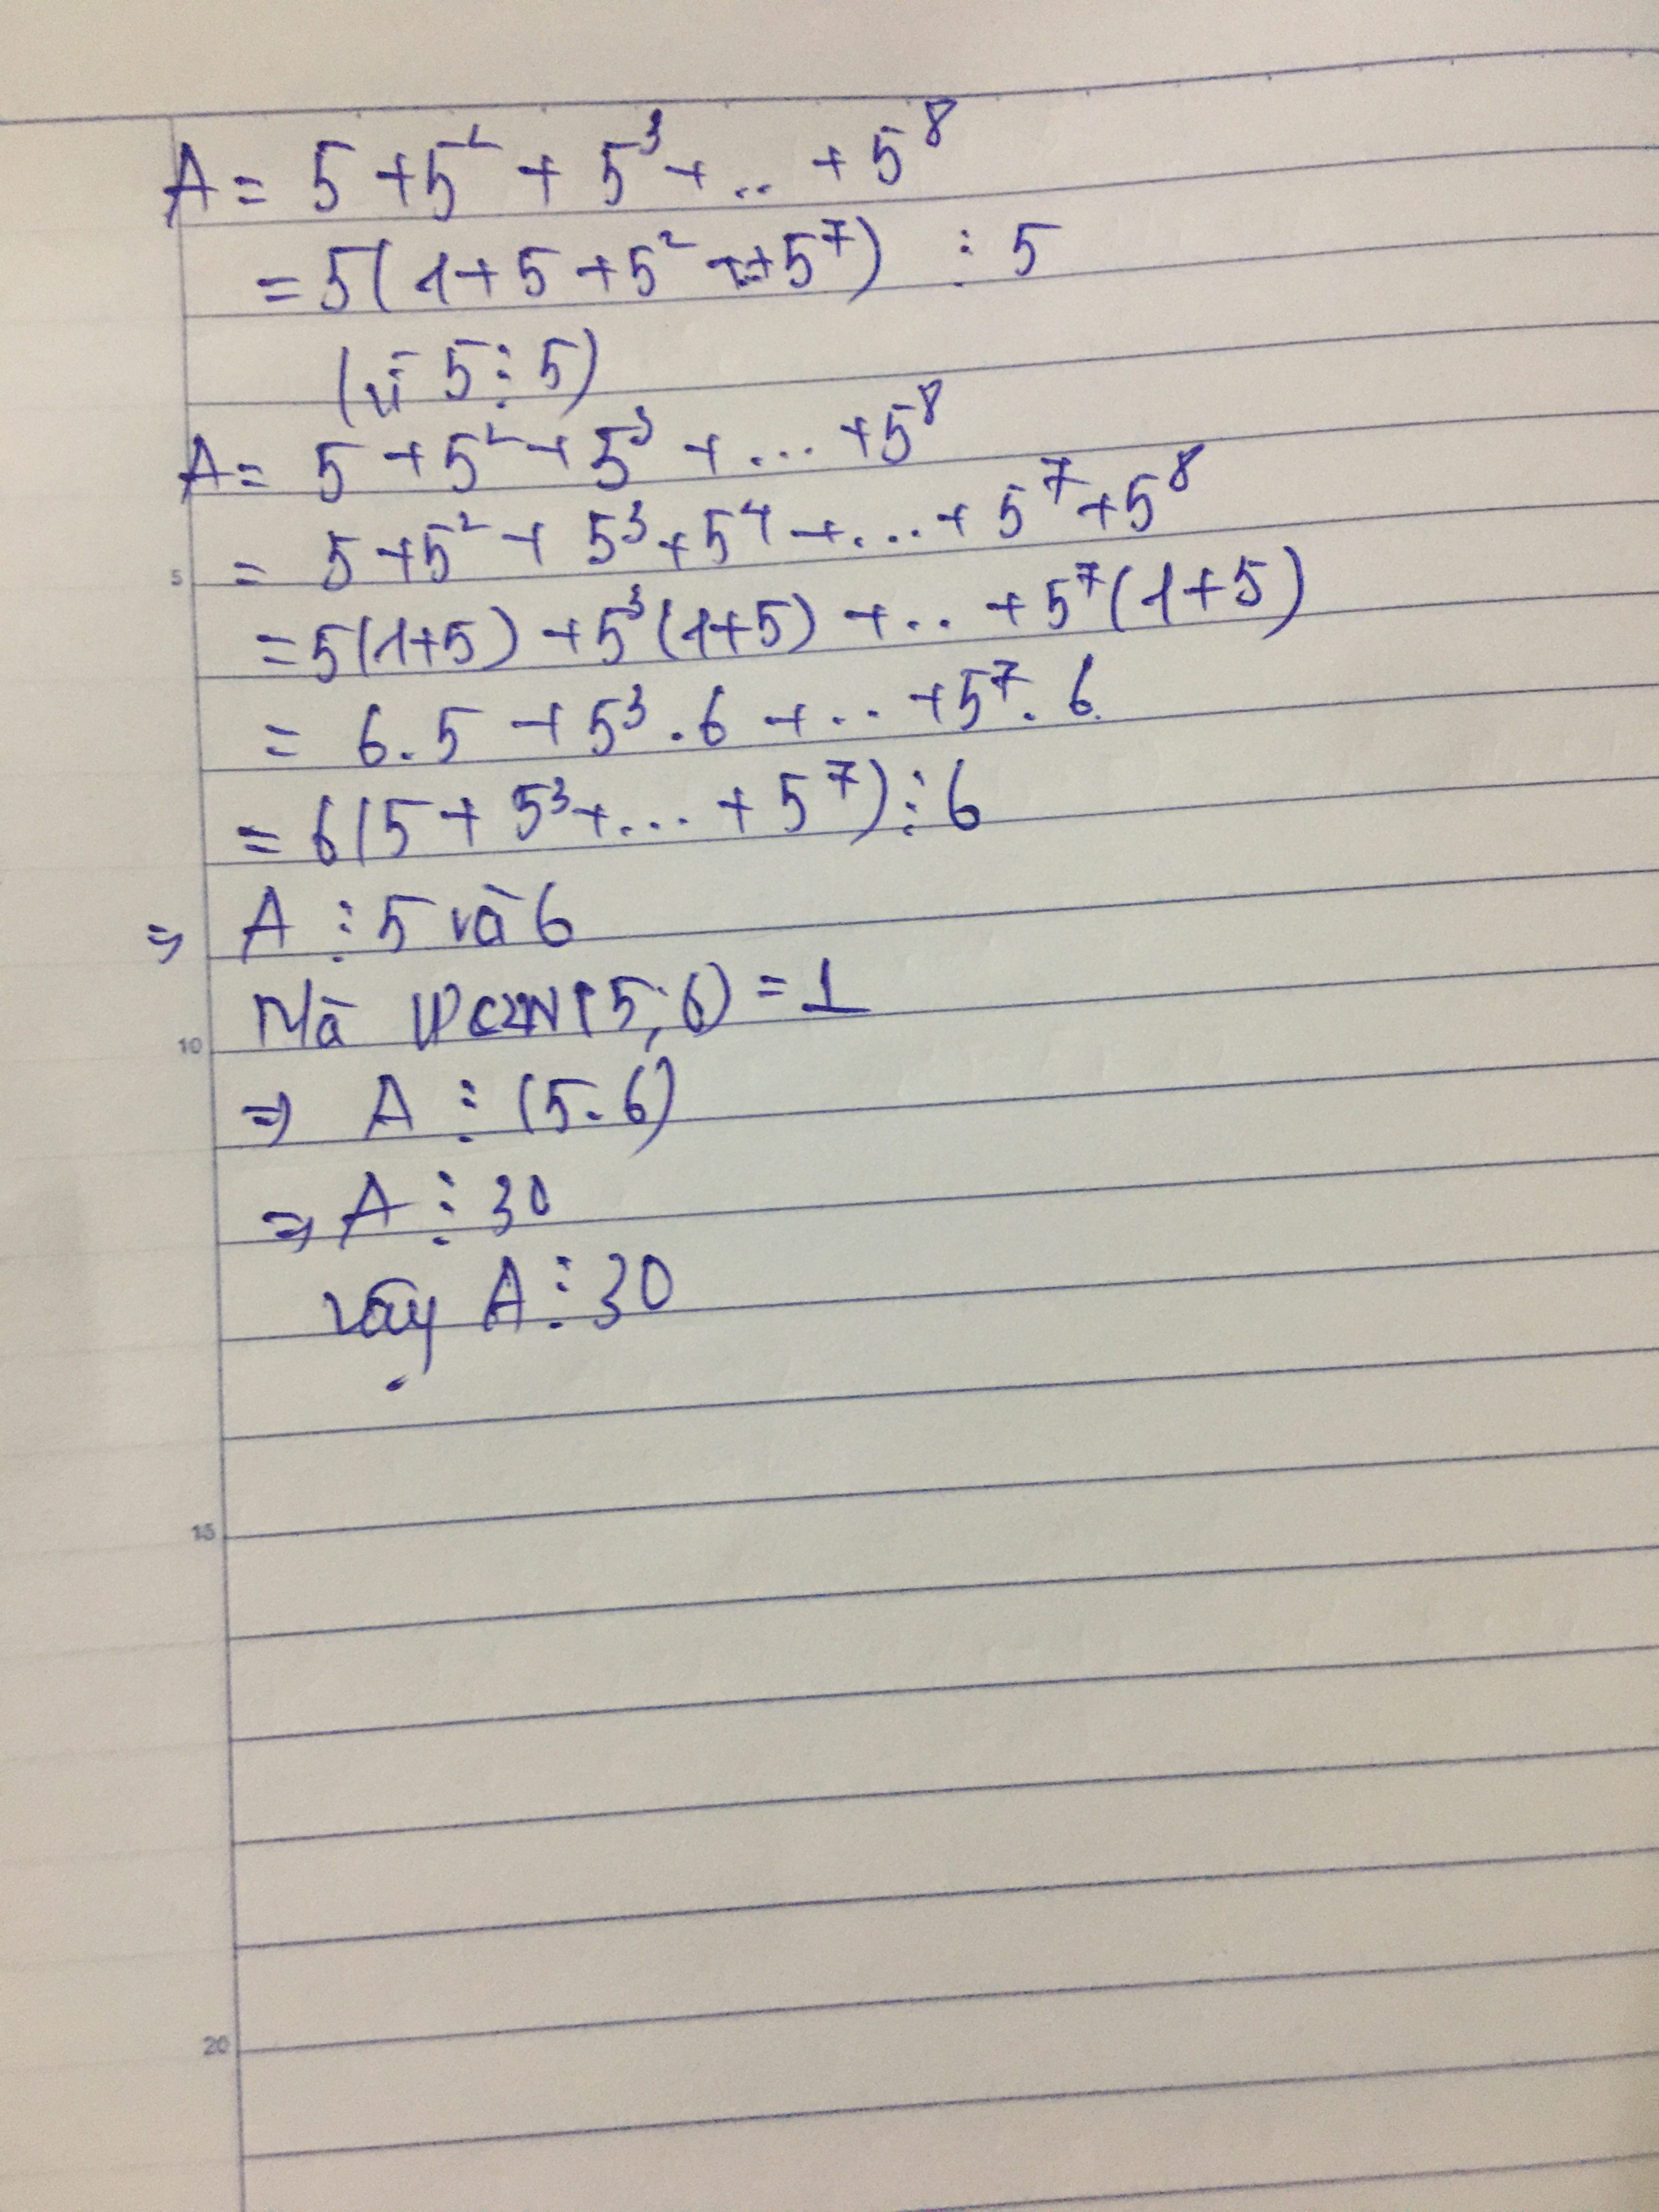 A = 5 + 5² + 5³ + .. + 5⁸
= 5(1 + 5 + 5² + .. + 5⁷) ⋮ 5
(vì 5 ⋮ 5)
A = 5 + 5² + 5³ + ... + 5⁸
= 5 + 5² + 5³ + 5⁴ + ... + 5⁷ + 5⁸
5
= 5(1+5) + 5³(1+5) + .. + 5⁷(1+5)
= 6.5 + 5³.6 + .. + 5⁷.6
= 6(5 + 5³ + ... + 5⁷) ⋮ 6
⇒ A ⋮ 5 và 6
Mà ƯCLN(5;6) = 1
10
⇒ A ⋮ (5.6)
⇒ A ⋮ 30
Vậy A ⋮ 30
15
20